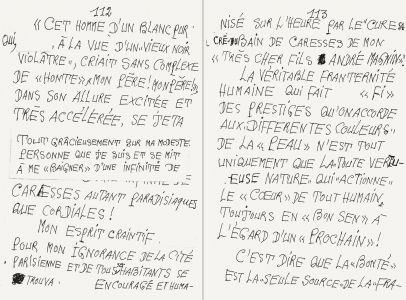 112
« CET HOMME D'UN BLANC PUR
QUI, À LA VUE D'UN « VIEUX NOIR
VIOLÂTRE », CRIAIT SANS COMPLEXE
DE « HONTE » « MON PÈRE ! MON PÈRE »
DANS SON ALLURE EXCITÉE ET
TRÈS ACCÉLÉRÉE, SE JETA
TOUT GRACIEUSEMENT SUR MA MODESTE
PERSONNE QUE JE SUIS ET SE MIT
À ME « BAIGNER » D'UNE INFINITÉ DE
CARESSES AUTANT PARADISIAQUES
QUE CORDIALES !
MON ESPRIT CRAINTIF
POUR MON IGNORANCE DE LA CITÉ
PARISIENNE ET DE TOUS HABITANTS SE
TROUVA ENCOURAGÉ ET HUMA-
113
NISÉ SUR L'HEURE PAR LE « CURE
CRÉ-DU BAIN DE CARESSES DE MON
« TRÈS CHER FILS ANDRÉ MAGNIN ».
LA VÉRITABLE FRATERNITÉ
HUMAINE QUI FAIT « FI »
DES PRESTIGES QU'ON ACCORDE
AUX « DIFFÉRENTES COULEURS »
DE LA « PEAU » N'EST TOUT
UNIQUEMENT QUE LA « TOUTE VERTU-
EUSE NATURE » QUI « ACTIONNE »
LE « CŒUR » DE TOUT HUMAIN,
TOUJOURS EN « BON SENS » À
L'ÉGARD D'UN « PROCHAIN » !
C'EST DIRE QUE LA « BONTÉ »
EST LA « SEULE SOURCE » DE LA « FRA-